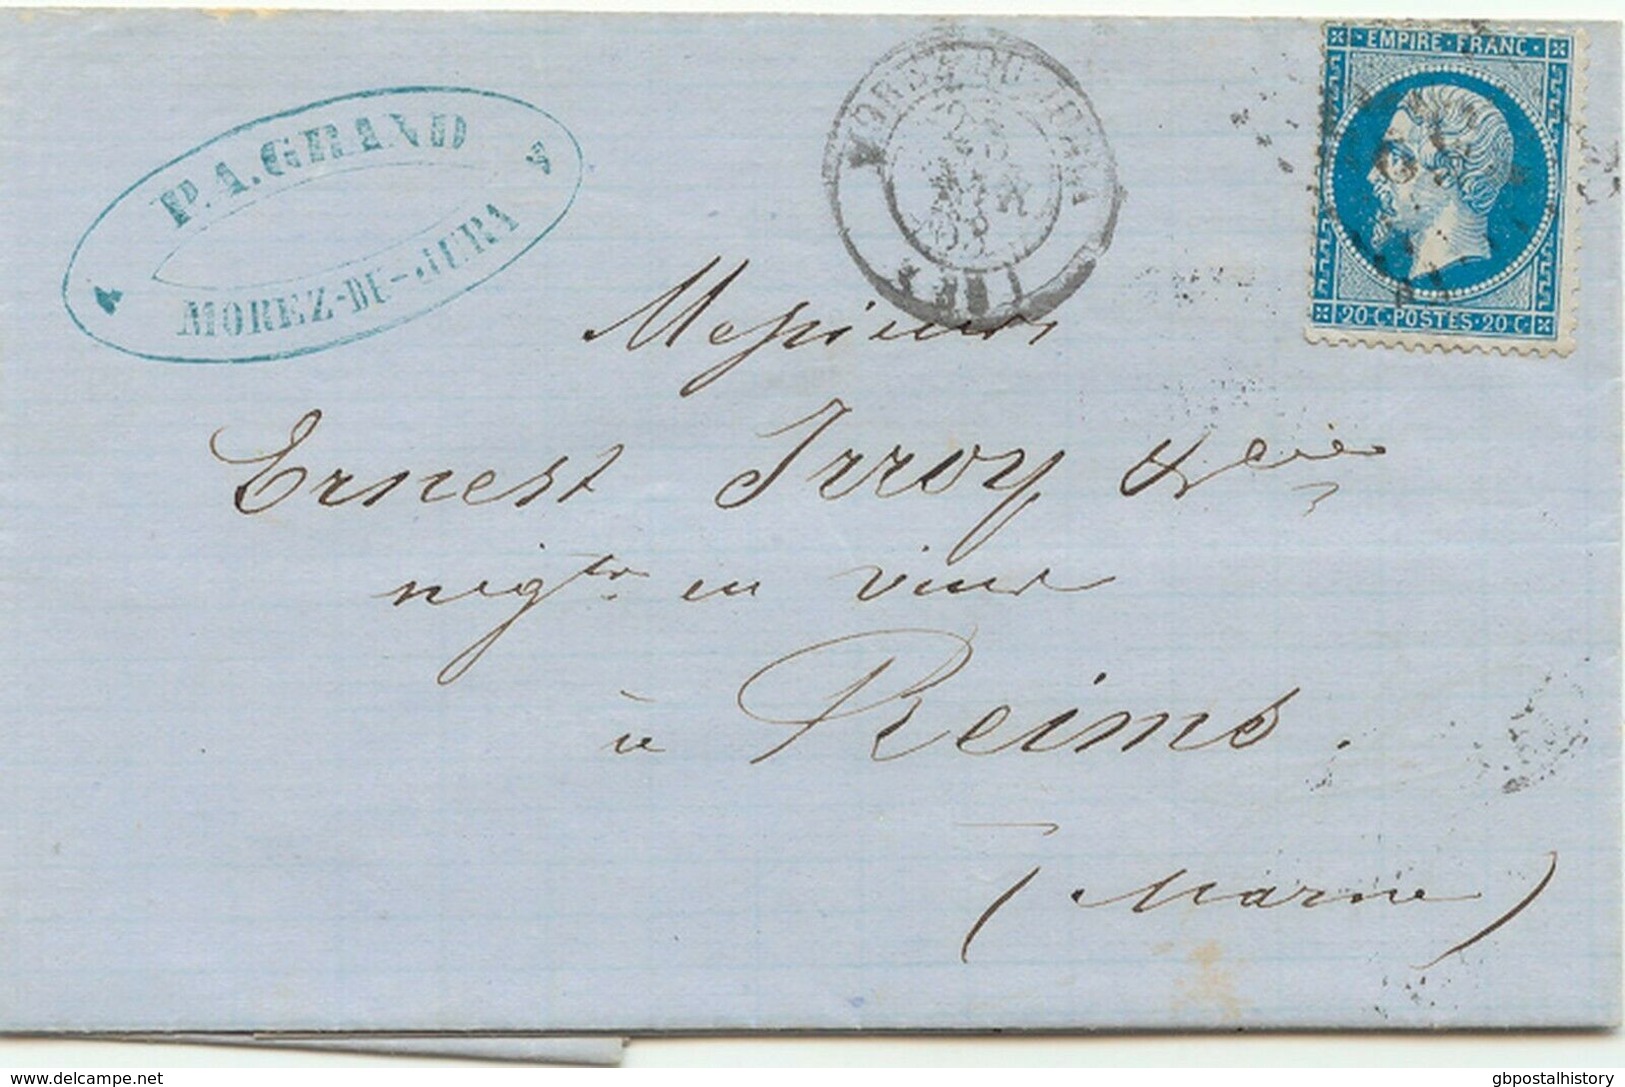 P. A. GRAND
MOREZ-DU-JURA
MOREZ-DU-JURA
(38)
EMPIRE FRANC
20 C POSTES 20 C
Messieurs
Ernest Irroy & Cie
négts en vins
à Reims.
(Marne)
www.delcampe.net
gbpostalhistory